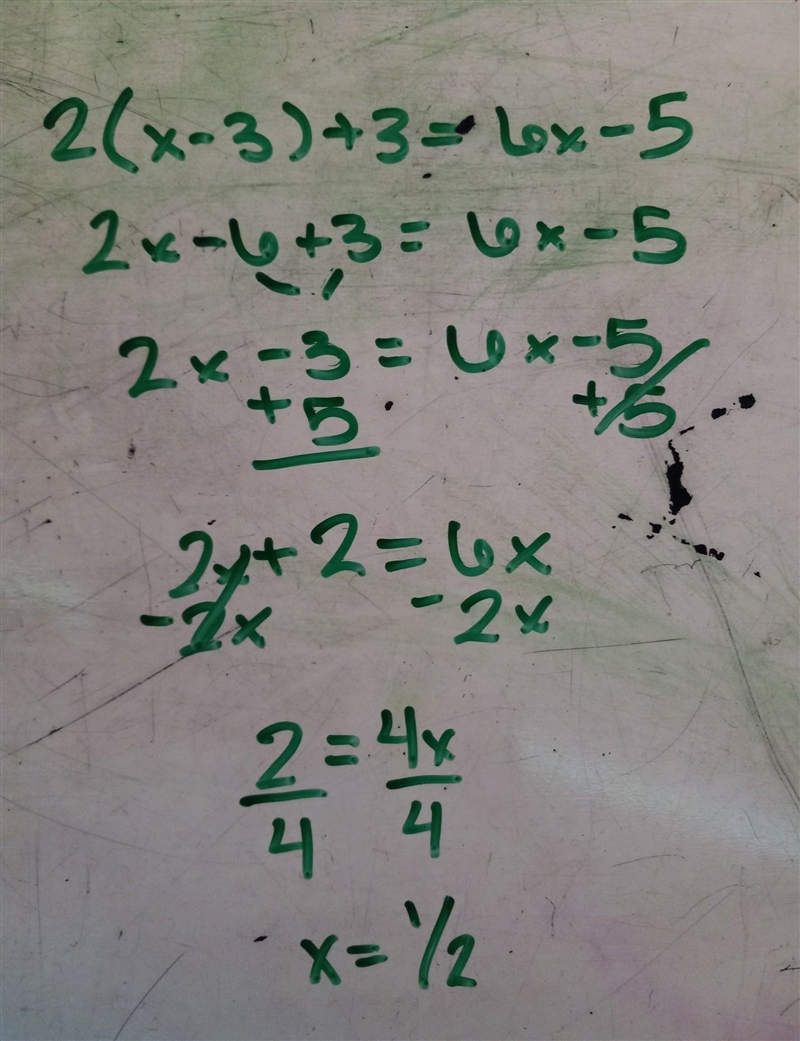 2(x-3)+3=6x-5
2x-6+3=6x-5
2x-3=6x-5
+5 +5
2x+2=6x
-2x -2x
2=4x
4 4
x=1/2